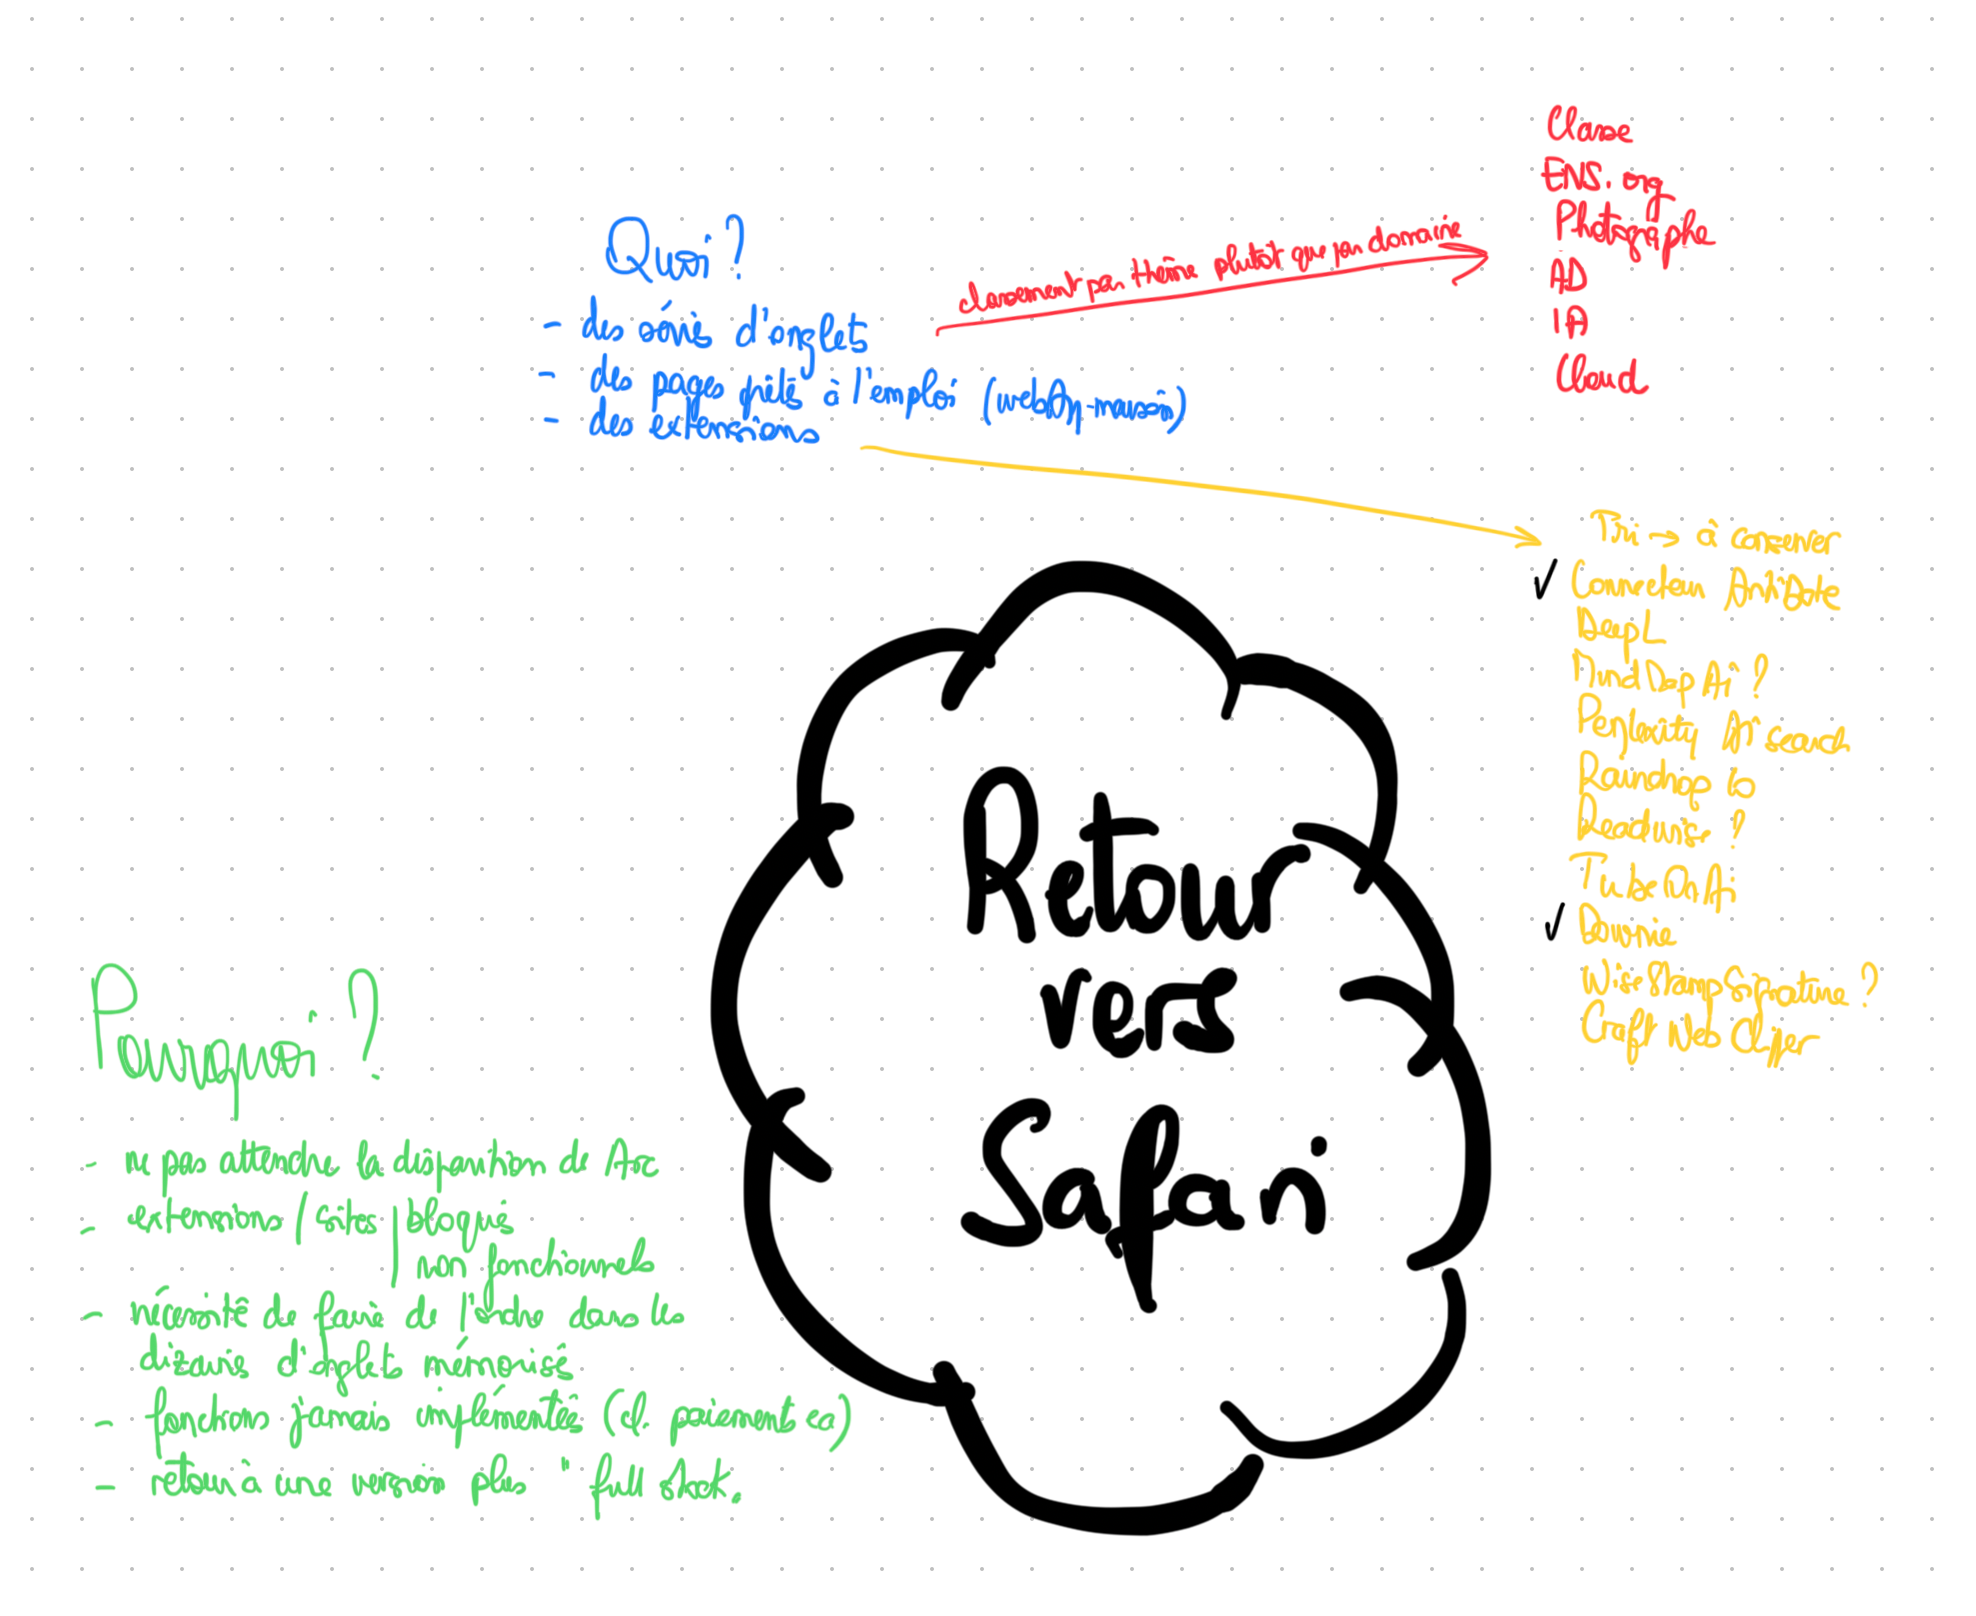 Quoi ?
- des séries d'onglets
- des pages prêtes à l'emploi (webApp-maison)
- des extensions
classement par thème plutôt que par domaine
Classe
ENS.org
Photographe
AD
IA
Cloud
Tri → à conserver
✓ Connecteur AntiDote
DeepL
MindMap Ai ?
Perplexity AI search
Raindrop io
Readwise ?
TubeOnAi
✓ Downie
WiseStamp Signature ?
Craft Web Clipper
Retour
vers
Safari
Pourquoi ?
- ne pas attendre la disparition de Arc
- extensions / sites | bloqués
non fonctionnels
- nécessité de faire de l'ordre dans les
dizaines d'onglets mémorisés
- fonctions jamais implémentées (cf. paiements ea)
- retour à une version plus " full stock.